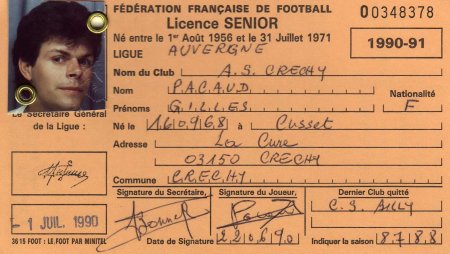 FÉDÉRATION FRANÇAISE DE FOOTBALL 00348378
Licence SENIOR
Né entre le 1er Août 1956 et le 31 Juillet 1971
LIGUE AUVERGNE 1990-91
Nom du Club A.S. CRECHY
Nom P.A.C.A.U.D. Nationalité
Prénoms G.I.L.L.E.S. F
Le Secrétaire Général
de la Ligue :
Né le 1.6.0.9.6.8 à Cusset
Adresse La Cure
03150 CRECHY
Commune C.R.E.C.H.Y
Signature du Secrétaire, Signature du Joueur, Dernier Club quitté
- 1 JUIL. 1990 C.S. BILLY
3615 FOOT : LE FOOT PAR MINITEL Date de Signature 2.2.0.6.9.0 Indiquer la saison 8.7.8.8